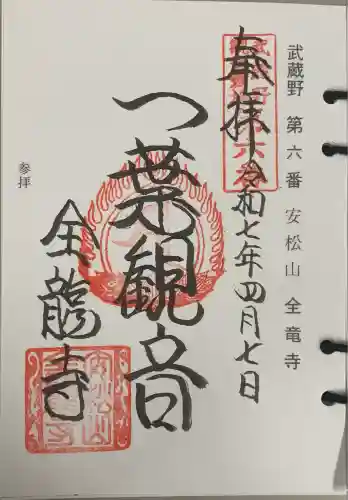 武蔵野 第六番 安松山 全竜寺
奉拝 令和七年四月七日
一葉観音
全龍寺
参拝